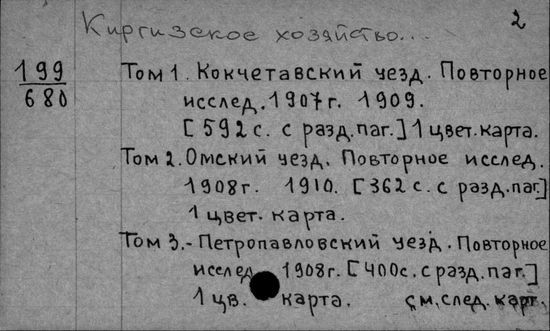 2
Киргизское хозяйство...
199
680
Том 1. Кокчетавский уезд. Повторное
исслед. 1907г. 1909.
[592 с. с разд. паг.] 1 цвет. карта.
Том 2. Омский уезд. Повторное исслед.
1908г. 1910. [362 с. с разд. паг.]
1 цвет. карта.
Том 3.- Петропавловский уезд. Повторное
исслед 1908г. [400с. с разд. паг.]
1 цв. карта. см. след. карт.